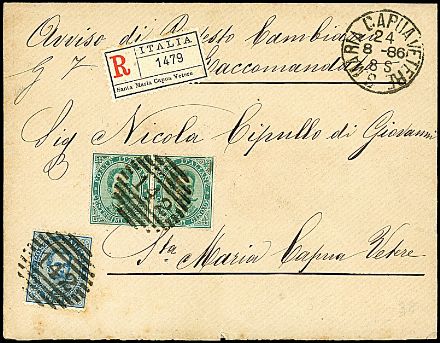 Avviso di Protesto Cambiario
Raccomandata
R
ITALIA
1479
Santa Maria Capua Vetere
S. MARIA CAPUA VETERE
24
8 -86
8 S
Sig Nicola Cipullo di Giovanni
Sta Maria Capua Vetere